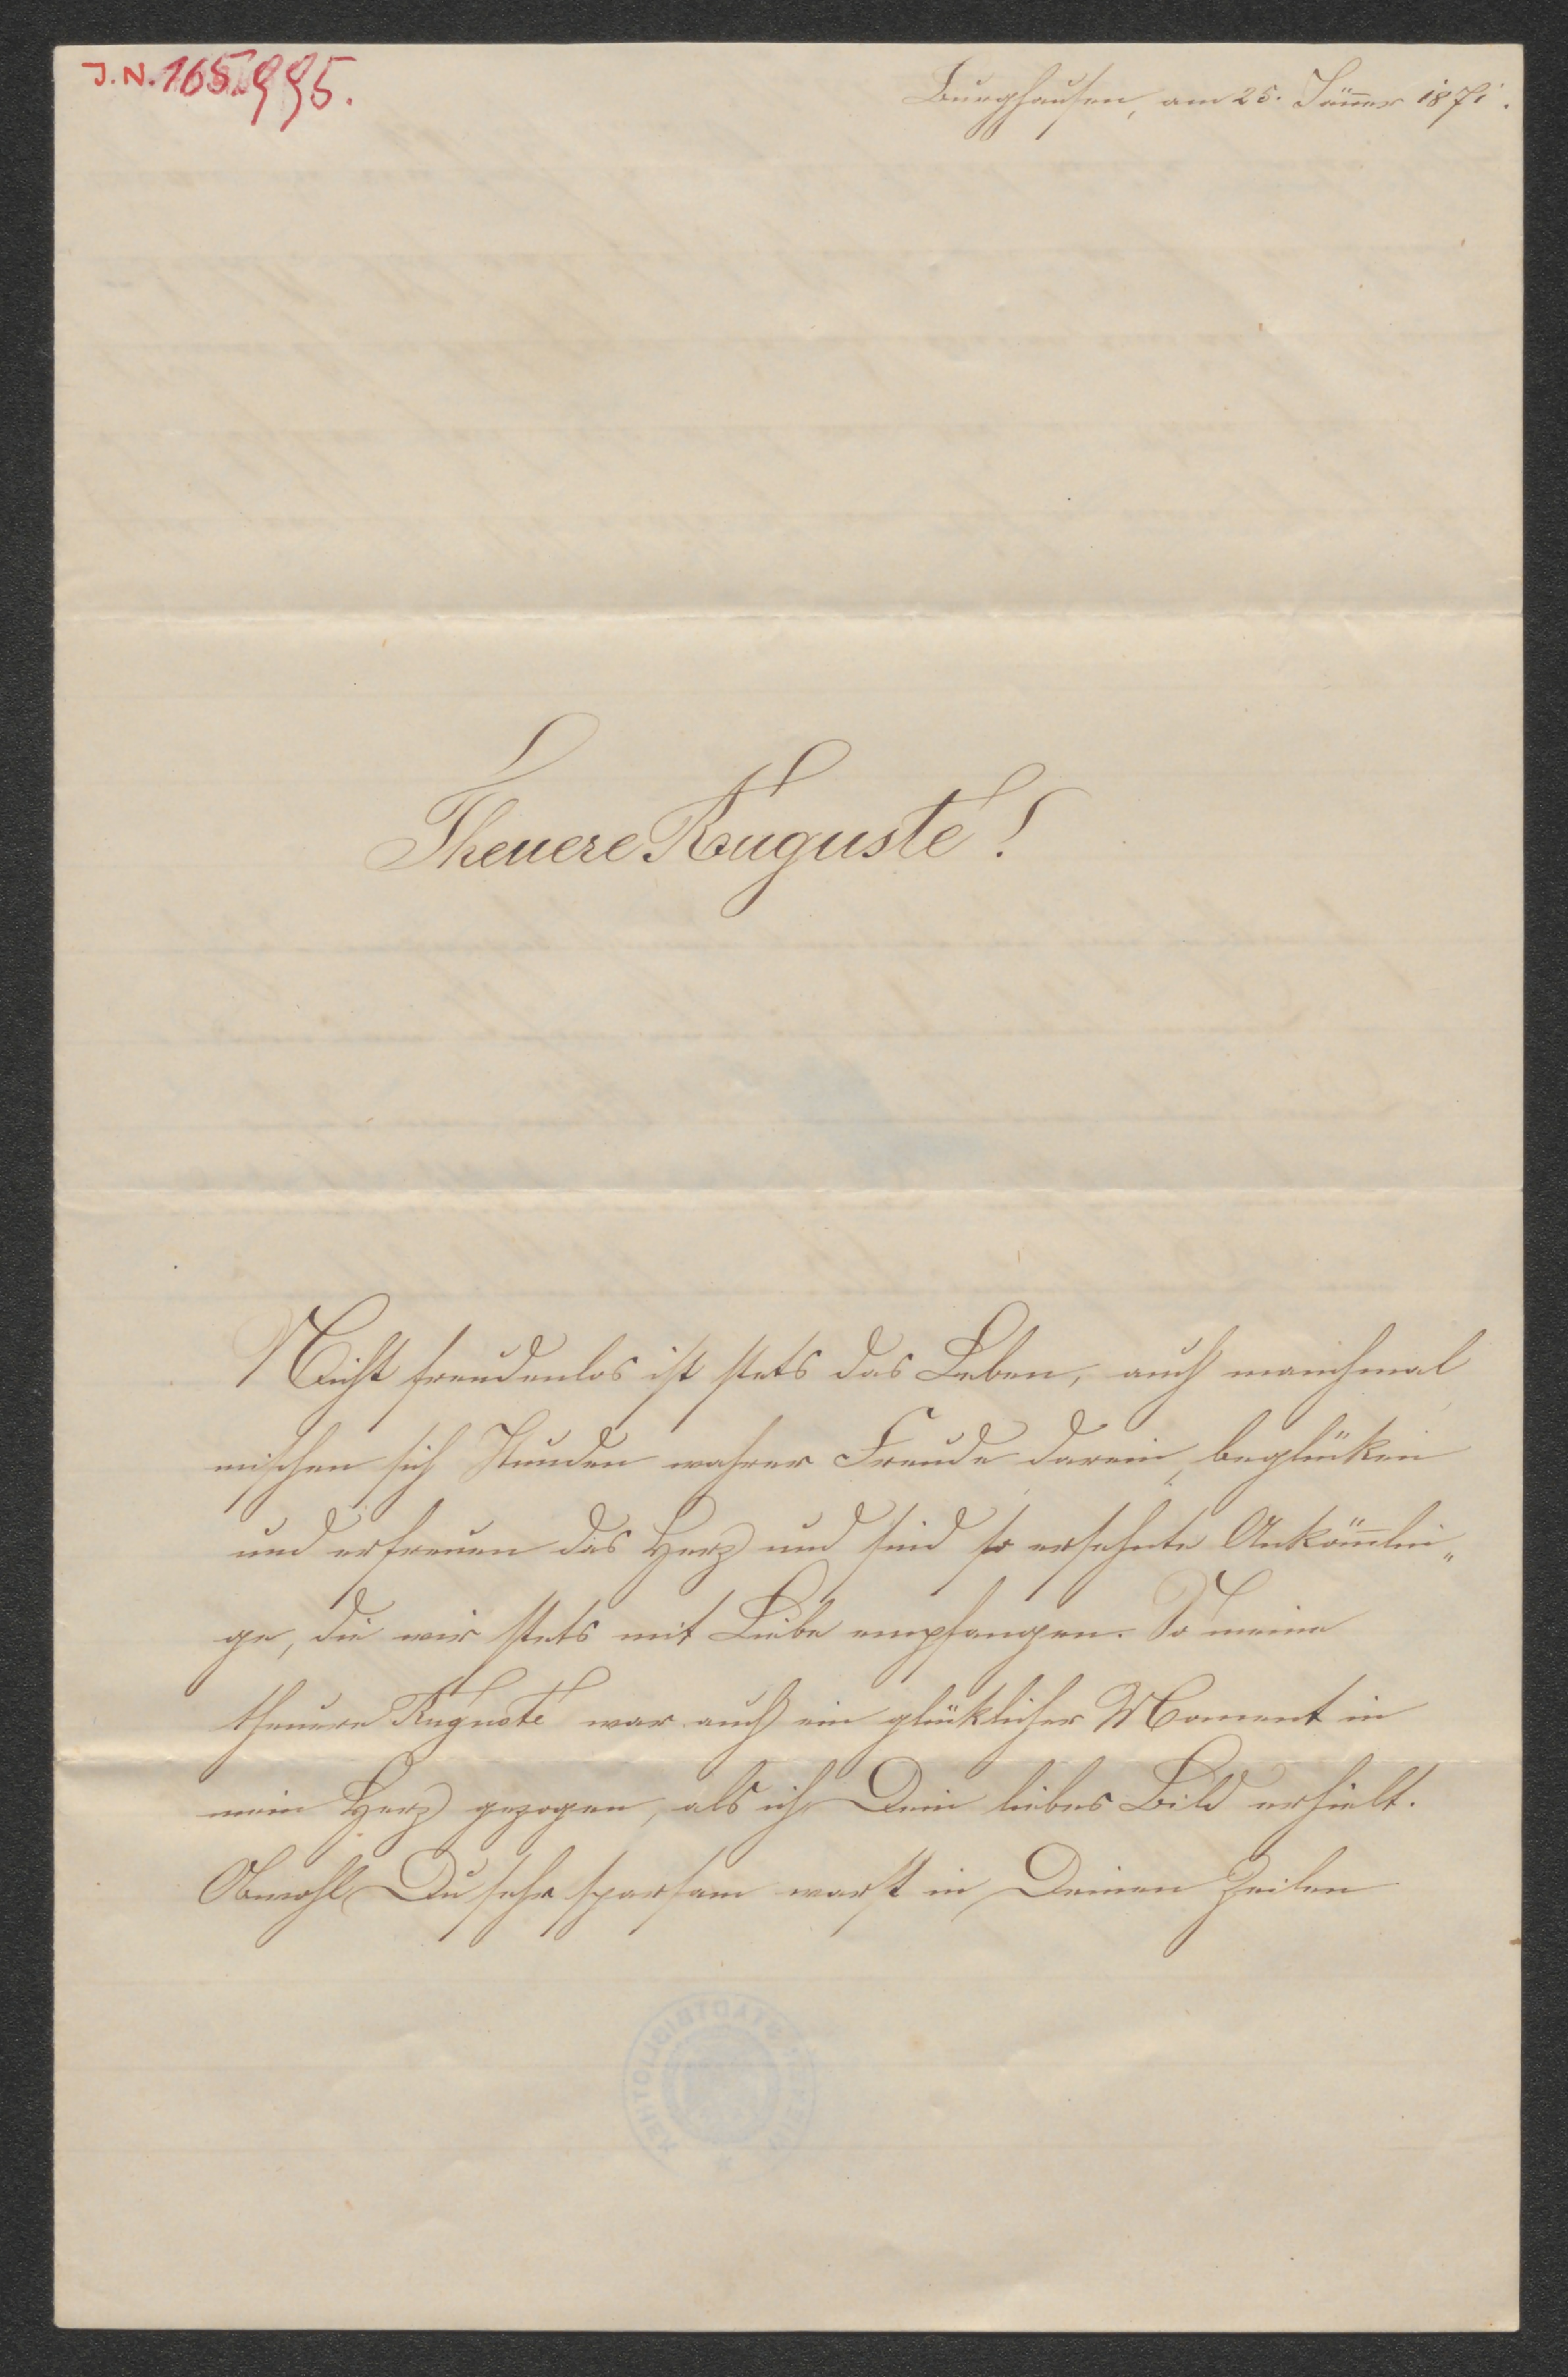 J.N. 165.995.
Burghausen, am 25. Jäner 1871.
Theuere Auguste!
Nicht freudenlos ist stets das Leben, auch manchmal
mischen sich Stunden wahrer Freude darein, beglüken
und erfreuen das Herz und sind so ersehnte Ankömlin„
ge, die wir stets mit Liebe empfangen. So meine
theuere Auguste war auch ein glüklicher Moment in
mein Herz gezogen, als ich Dein liebes Bild erhielt.
Obwohl Du sehr sparsam warst in Deinen Zeilen
STADTBIBLIOTHEK